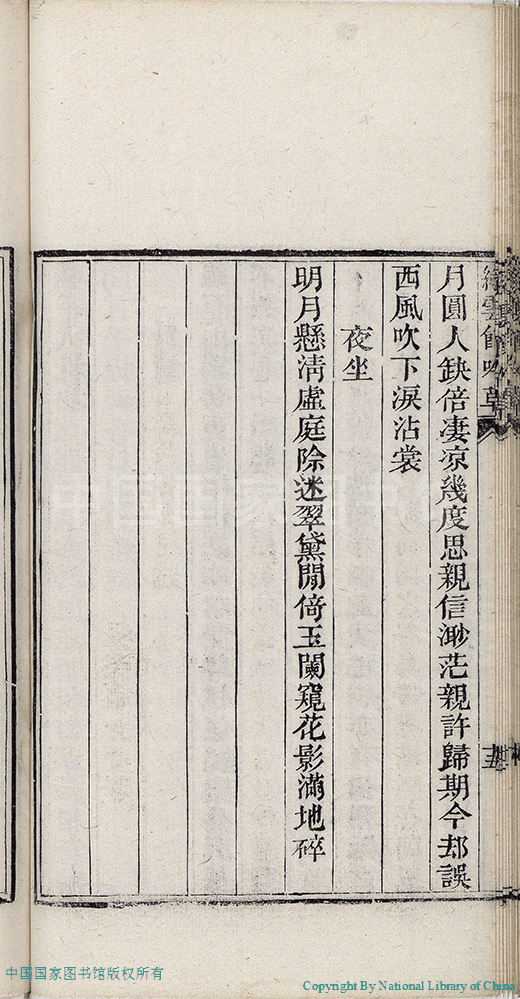 月圓人缺倍凄凉幾度思親信渺茫親許歸期今却誤
西風吹下淚沾裳
夜坐
明月懸清虛庭除迷翠黛閒倚玉闌窺花影滿地碎
中国国家图书馆版权所有
Copyright By National Library of China